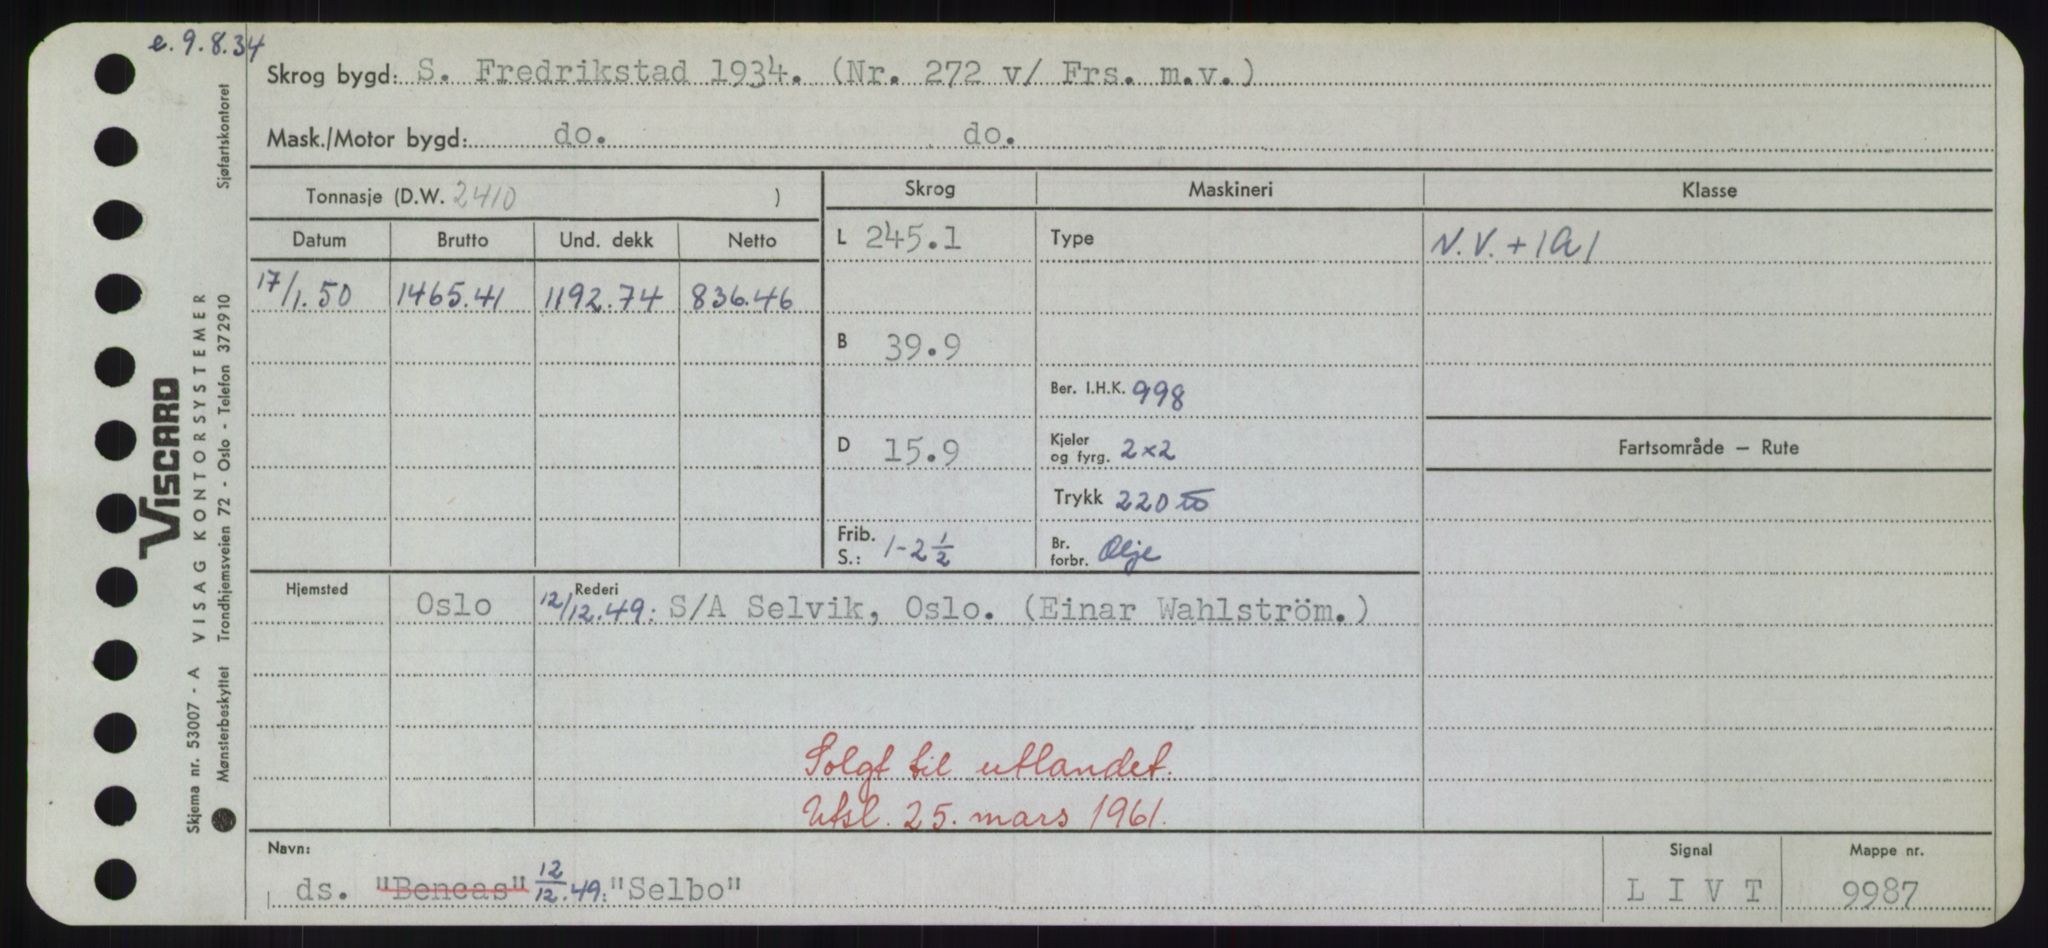 e. 9.8.34
Skrog bygd: S. Fredrikstad 1934. (Nr. 272 v/ Frs. m.v.)
Mask./Motor bygd: do. do.
Tonnasje (D.W. 2410 )
Skrog Maskineri Klasse
Datum Brutto Und. dekk Netto
L 245.1 Type N.V. + 1A1
17/1.50 1465.41 1192.74 836.46
B 39.9
Ber. I.H.K. 998
D 15.9 Kjeler og fyrg. 2×2 Fartsområde — Rute
Trykk 220 lb
Frib. S.: 1-2 1/2 Br. forbr. Olje
Hjemsted Rederi
Oslo 12/12.49: S/A Selvik, Oslo. (Einar Wahlström.)
Solgt til utlandet.
Utsl. 25. mars 1961.
Navn: Signal Mappe nr.
ds. "Bencas" 12/12.49: "Selbo" L I V T 9987
Skjema nr. 53007 - A VISAG KONTORSYSTEMER
Mønsterbeskyttet Trondhjemsveien 72 - Oslo - Telefon 372910 Sjøfartskontoret
VISCARD